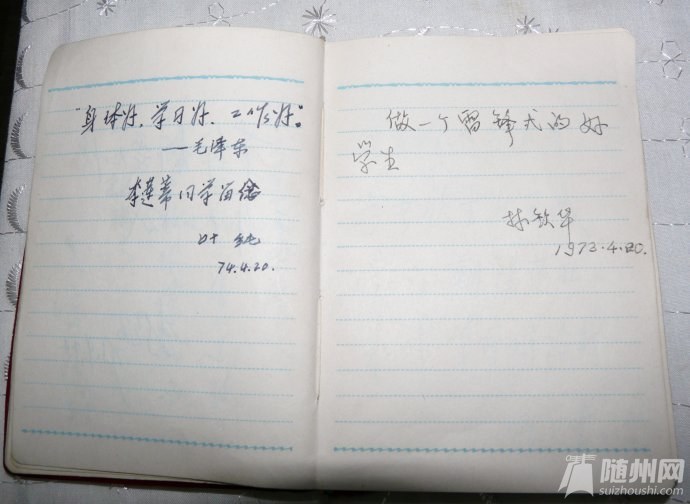 "身体好，学习好，工作好。"
——毛泽东
李莲蒂同学留念
叶纯
74.4.20.
做一个雷锋式的好
学生
林钦华
1973.4.20.
随州网
suizhoushi.com